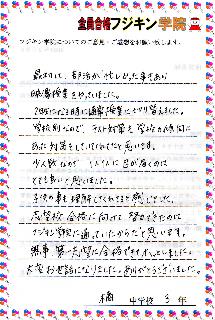 全員合格フジキン学院
フジキン学院についてのご意見・ご感想をお願い致します。
最初は、部活が忙しかった事もあり
映像授業をやっていました。
2年になる時に通常授業に切り替えました。
学校別なので、テスト対策も学校の時間に
あった対策をしていただけてたと思います。
少人数なので 1人1人に目が届くのは
とても良いと思いました。
子供の事も理解してくれてると感じました。
高校 合格に向けて 頑張れたのは
フジキン学院に通っていたからだと思います。
無事、第一志望に合格できてホッとしました。
大変お世話になりました。ありがとうございました。
楠 中学校 3 年